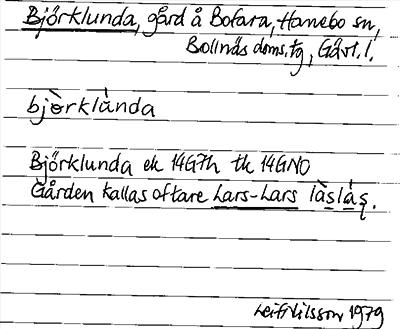 Björklunda, gård å Bofara, Hanebo sn,
Bollnäs doms.tg, Gävl. l.
bjö̀rklùnda
Björklunda ek 14G7h tk 14GNO
Gården kallas oftare Lars-Lars
Leif Nilsson 1979